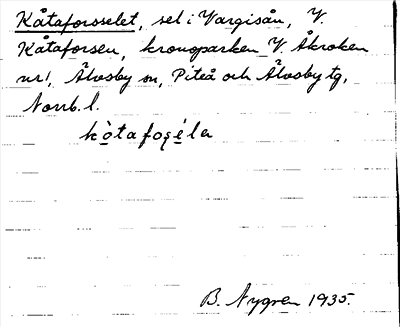 Kåtaforsselet, sel i Vargisån, V.
Kåtaforsen, kronoparken V. Åkroken
nr 1, Älvsby sn, Piteå och Älvsby tg,
Norrb. l.
kòtafoṣéla
B. Nygren 1935.